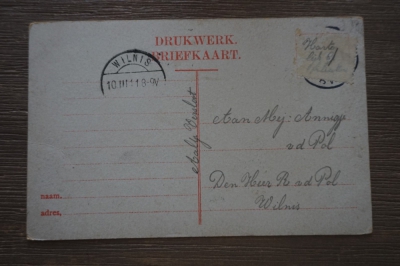 DRUKWERK.
BRIEFKAART.
WILNIS
10.III 11.8-9V
Harte
Aan Mej: Annigje
vd Pol
Den Heer R vd Pol
Wilnis
naam,
adres,